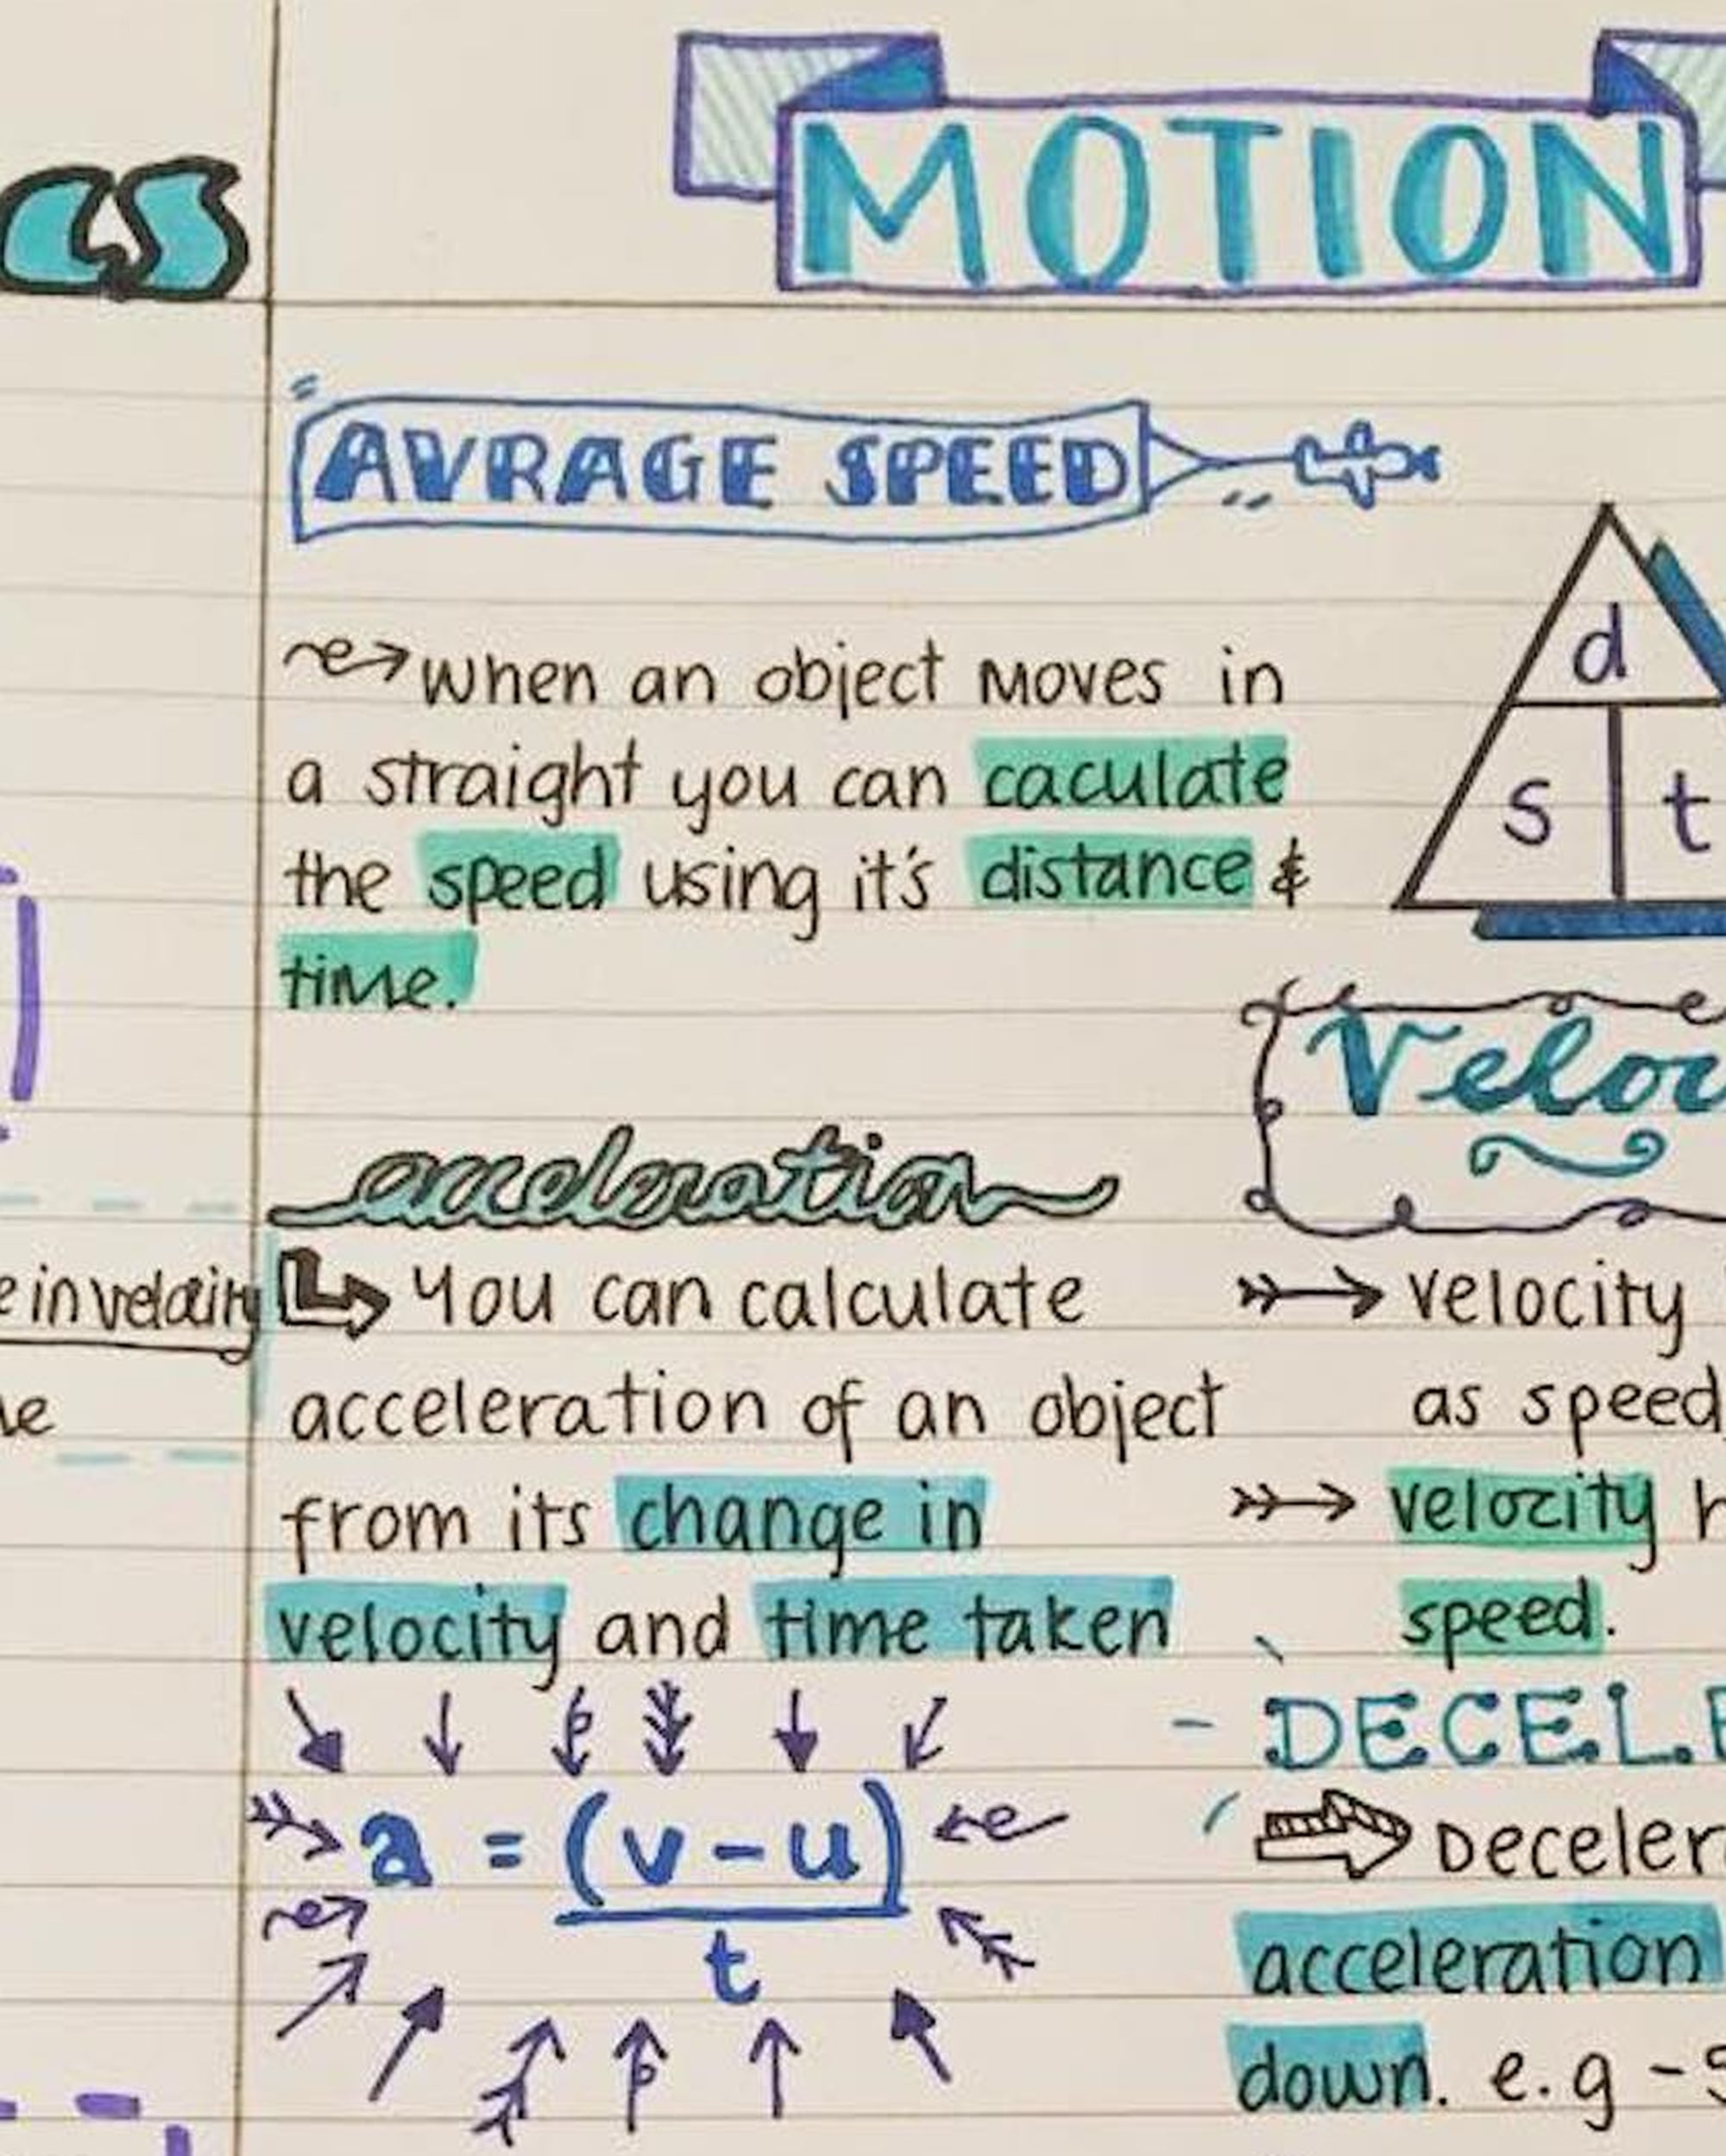 CS
MOTION
AVRAGE SPEED
d
s t
When an object moves in
a straight you can caculate
the speed using it's distance &
time.
acceleration
You can calculate
acceleration of an object
from its change in
velocity and time taken
a = (v-u)
t
e in
Veloc
velocity
as speed,
velocity h
speed.
DECELE
Deceler
acceleration
down. e.g -5